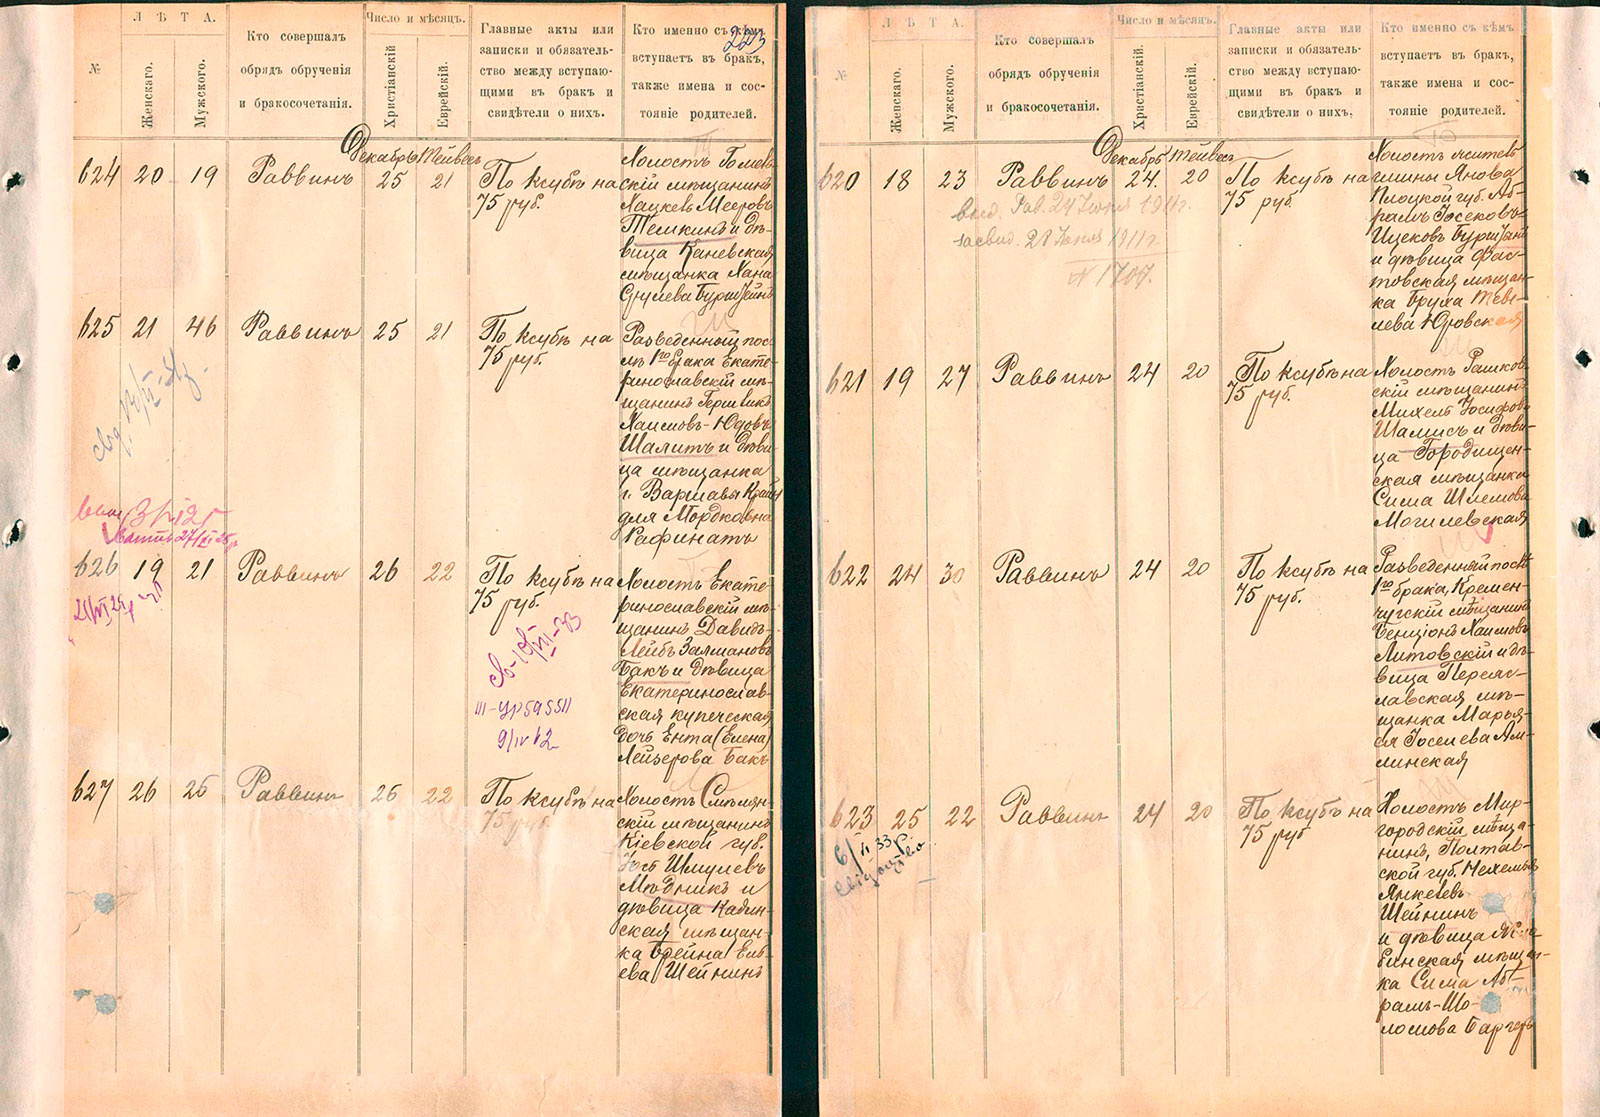 223
№
Л Ѣ Т А.
Женскаго.
Мужского.
Кто совершалъ
обрядъ обрученія
и бракосочетанія.
Число и мѣсяцъ.
Христіанскій
Еврейскій.
Главные акты или
записки и обязатель-
ство между вступаю-
щими въ бракъ и
свидѣтели о нихъ.
Кто именно съ кѣмъ
вступаетъ въ бракъ,
также имена и сос-
тояніе родителей.
Декабрь Тейвесъ
624 20 19 Раввинъ 25 21
По ксубѣ на
75 руб.
Холостъ Гомель
скій мѣщанинъ
Хацкель Мееровъ
Темкинъ и дѣ-
вица Каневская
мѣщанка Хана
Срулева Бурштейнъ
625 21 46 Раввинъ 25 21
По ксубѣ на
75 руб.
Разведенный пос-
лѣ 1го брака Екате-
ринославскій мѣ-
щанинъ Гершикъ
Хаимовъ-Юдовъ
Шалитъ и дѣви-
ца мѣщанка
г. Варшавы Крайн
для Мордковна
Рафинатъ
626 19 21 Раввинъ 26 22
По ксубѣ на
75 руб.
Холостъ Екате-
ринославскій мѣ-
щанинъ Давидъ-
Лейбъ Залмановъ
Бакъ и дѣвица
Екатеринослав-
ская купеческая
дочь Ента (Елена)
Лейзерова Бакъ
III-УР 595511
9/IV 62
627 26 25 Раввинъ 26 22
По ксубѣ на
75 руб.
Холостъ Смѣлян-
скій мѣщанинъ
Кіевской губ.
Іось Шмулевъ
Мѣдникъ и
дѣвица Кадин-
ская мѣщан-
ка Брейна Ель-
ева Шейнинъ
№
Л Ѣ Т А.
Женскаго.
Мужского.
Кто совершалъ
обрядъ обрученія
и бракосочетанія.
Число и мѣсяцъ.
Христіанскій.
Еврейскій.
Главные акты или
записки и обязатель-
ство между вступаю-
щими въ бракъ и
свидѣтели о нихъ.
Кто именно съ кѣмъ
вступаетъ въ бракъ,
также имена и сос-
тояніе родителей.
Декабрь Тейвесъ
620 18 23 Раввинъ 24. 20
По ксубѣ на
75 руб.
Холостъ житель
гмины Янова
Плоцкой губ. Аб
рамъ Іосековъ-
Ицековъ Бурштинъ
и дѣвица Фас-
товская мѣщан-
ка Бруха Теве-
лева Юровская
выд. Рав. 24 Іюня 1911г.
засвид. 28 Іюня 1911г.
№ 1707.
621 19 27 Раввинъ 24 20
По ксубѣ на
75 руб.
Холостъ Рашков-
скій мѣщанинъ
Михель Іосифовъ
Шамисъ и дѣви-
ца Городищен-
ская мѣщанка
Сима Шлемова
Могилевская
622 24 30 Раввинъ 24 20
По ксубѣ на
75 руб.
Разведенный послѣ
1го брака, Кремен-
чугскій мѣщанинъ
Бенціонъ Хаимовъ
Литовскій и дѣ-
вица Переяс-
лавская мѣ-
щанка Марья-
ся Іоселева Ал-
линская
623 25 22 Раввинъ 24 20
По ксубѣ на
75 руб
Холостъ Мир-
городскій, мѣща-
нинъ, Полтав-
ской губ. Нехемья
Янкелевъ
Шейнинъ
и дѣвица
бинская мѣщан-
ка Сима Аб-
рамъ-Шо-
ломова Баргеръ
6/VI 33 р.
свідоцтво